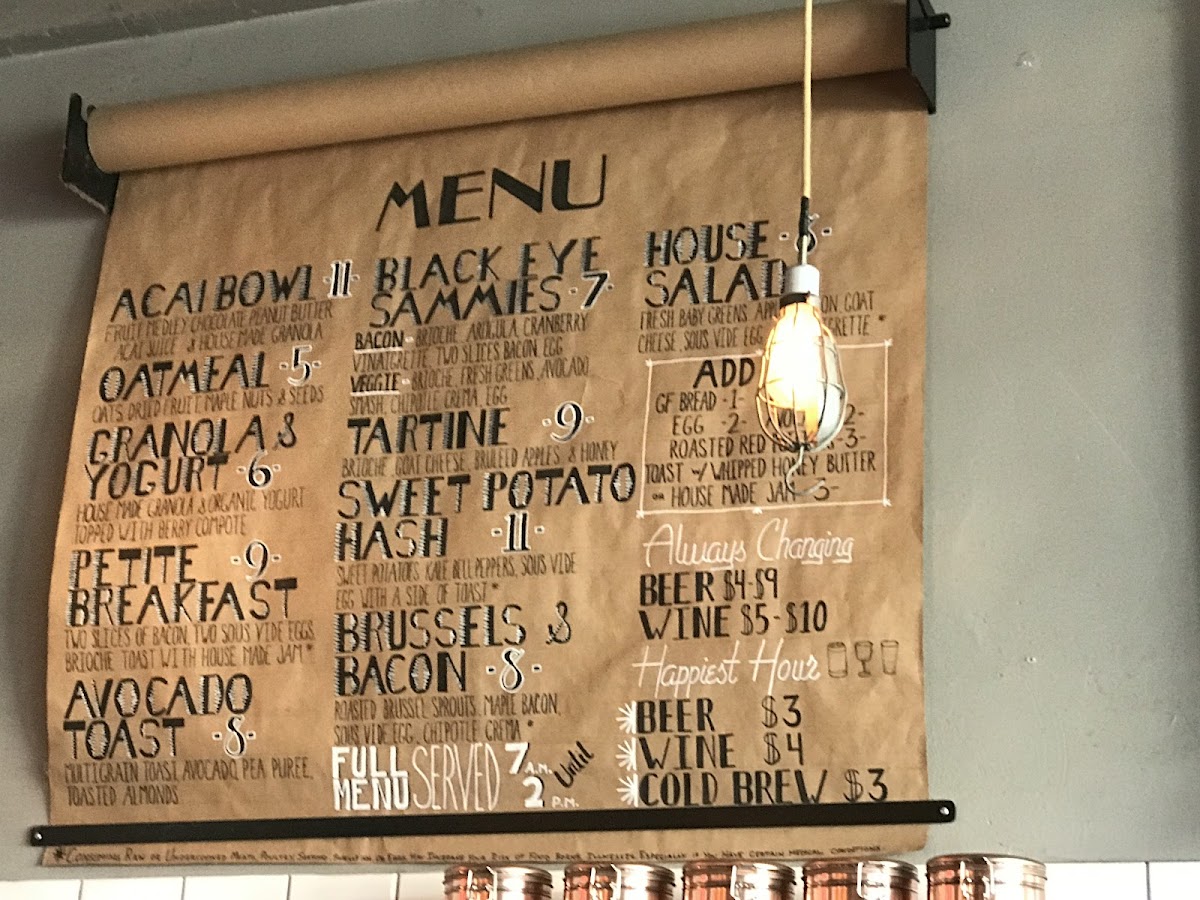 MENU
ACAI BOWL -11-
FRUIT MEDLEY CHOCOLATE PEANUT BUTTER
ACAI JUICE & HOUSEMADE GRANOLA
OATMEAL -5-
OATS DRIED FRUIT, MAPLE NUTS & SEEDS
GRANOLA &
YOGURT -6-
HOUSE MADE GRANOLA & ORGANIC YOGURT
TOPPED WITH BERRY COMPOTE
PETITE -9-
BREAKFAST
TWO SLICES OF BACON, TWO SOUS VIDE EGGS
BRIOCHE TOAST WITH HOUSE MADE JAM *
AVOCADO
TOAST -8-
MULTIGRAIN TOAST, AVOCADO, PEA PUREE,
TOASTED ALMONDS
BLACK EYE
SAMMIES -7-
BACON - BRIOCHE, ARUGULA, CRANBERRY
VINAIGRETTE, TWO SLICES BACON, EGG
VEGGIE - BRIOCHE, FRESH GREENS, AVOCADO
SMASH, CHIPOTLE CREMA, EGG
TARTINE -9-
BRIOCHE, GOAT CHEESE, BRULEED APPLES, & HONEY
SWEET POTATO
HASH -11-
SWEET POTATOES, KALE, BELL PEPPERS, SOUS VIDE
EGG WITH A SIDE OF TOAST *
BRUSSELS &
BACON -8-
ROASTED BRUSSEL SPROUTS, MAPLE BACON,
SOUS VIDE EGG, CHIPOTLE CREMA *
FULL MENU SERVED 7 A.M. Until
2 P.M.
HOUSE
SALAD
FRESH BABY GREENS, GOAT
CHEESE, SOUS VIDE EGG *
ADD
GF BREAD -1-
EGG -2- 2-
ROASTED RED -3-
TOAST w/ WHIPPED HONEY BUTTER
or HOUSE MADE JAM -3-
Always Changing
BEER $4-$9
WINE $5-$10
Happiest Hour
BEER $3
WINE $4
COLD BREW $3
*CONSUMING RAW OR UNDERCOOKED MEATS, POULTRY, SEAFOOD, SHELLFISH OR EGGS MAY INCREASE YOUR RISK OF FOOD BORNE ILLNESSES, ESPECIALLY IF YOU HAVE CERTAIN MEDICAL CONDITIONS